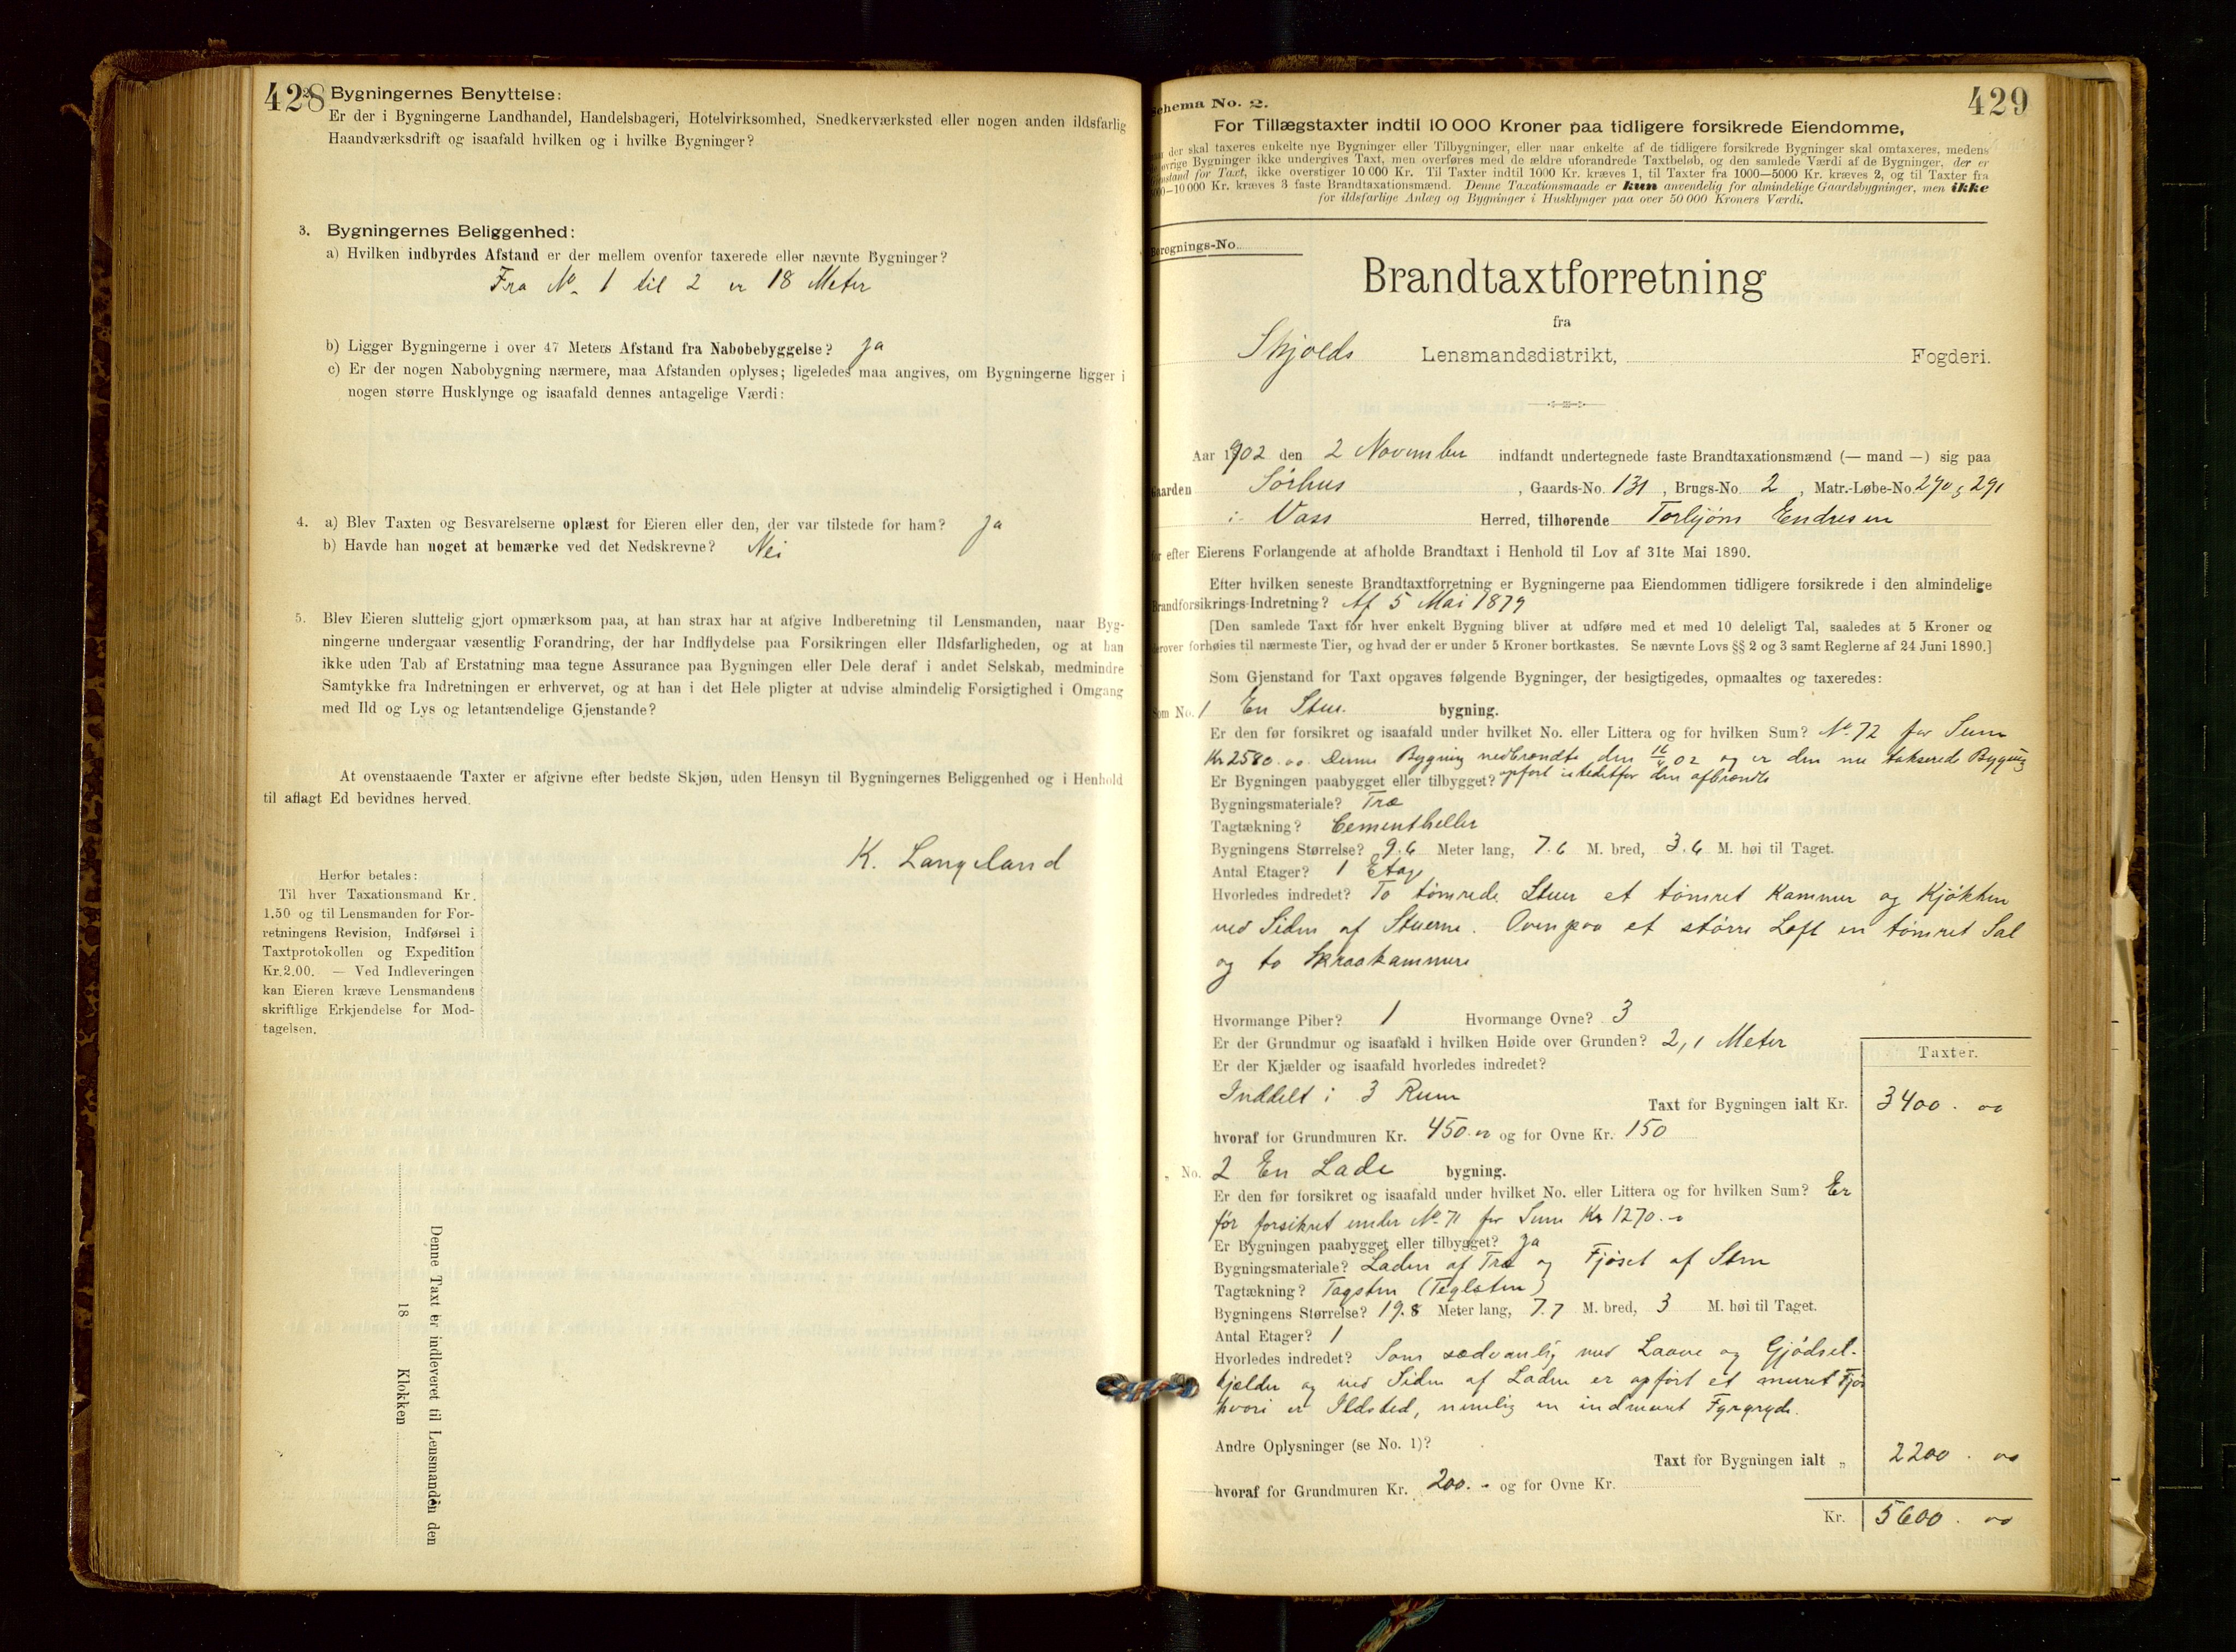 428
2. Bygningernes Benyttelse:
Er der i Bygningerne Landhandel, Handelsbageri, Hotelvirksomhed, Snedkerværksted eller nogen anden ildsfarlig
Haandværksdrift og isaafald hvilken og i hvilke Bygninger?
3. Bygningernes Beliggenhed:
a) Hvilken indbyrdes Afstand er der mellem ovenfor taxerede eller nævnte Bygninger?
Fra No. 1 til 2 er 18 Meter
b) Ligger Bygningerne i over 47 Meters Afstand fra Nabobebyggelse? Ja
c) Er der nogen Nabobygning nærmere, maa Afstanden oplyses; ligeledes maa angives, om Bygningerne ligger i
nogen større Husklynge og isaafald dennes antagelige Værdi:
4. a) Blev Taxten og Besvarelserne oplæst for Eieren eller den, der var tilstede for ham? Ja
b) Havde han noget at bemærke ved det Nedskrevne? Nei
5. Blev Eieren sluttelig gjort opmærksom paa, at han strax har at afgive Indberetning til Lensmanden, naar Byg-
ningerne undergaar væsentlig Forandring, der har Indflydelse paa Forsikringen eller Ildsfarligheden, og at han
ikke uden Tab af Erstatning maa tegne Assurance paa Bygningen eller Dele deraf i andet Selskab, medmindre
Samtykke fra Indretningen er erhvervet, og at han i det Hele pligter at udvise almindelig Forsigtighed i Omgang
med Ild og Lys og letantændelige Gjenstande?
At ovenstaaende Taxter er afgivne efter bedste Skjøn, uden Hensyn til Bygningernes Beliggenhed og i Henhold
til aflagt Ed bevidnes herved.
K. Langeland
Herfor betales:
Til hver Taxationsmand Kr.
1.50 og til Lensmanden for For-
retningens Revision, Indførsel i
Taxtprotokollen og Expedition
Kr. 2.00. — Ved Indleveringen
kan Eieren kræve Lensmandens
skriftlige Erkjendelse for Mod-
tagelsen.
Denne Taxt er indleveret til Lensmanden den
18 Klokken
429
Schema No. 2.
For Tillægstaxter indtil 10 000 Kroner paa tidligere forsikrede Eiendomme,
der skal taxeres enkelte nye Bygninger eller Tilbygninger, eller naar enkelte af de tidligere forsikrede Bygninger skal omtaxeres, medens
øvrige Bygninger ikke undergives Taxt, men overføres med de ældre uforandrede Taxtbeløb, og den samlede Værdi af de Bygninger, der er
Gjenstand for Taxt, ikke overstiger 10 000 Kr. Til Taxter indtil 1000 Kr. kræves 1, til Taxter fra 1000—5000 Kr. kræves 2, og til Taxter fra
—10 000 Kr. kræves 3 faste Brandtaxationsmænd. Denne Taxationsmaade er kun anvendelig for almindelige Gaardsbygninger, men ikke
for ildsfarlige Anlæg og Bygninger i Husklynger paa over 50 000 Kroners Værdi.
Beregnings-No.
Brandtaxtforretning
fra
Skjolds Lensmandsdistrikt, Fogderi.
Aar 1902 den 2 November indfandt undertegnede faste Brandtaxationsmænd (— mand —) sig paa
Gaarden Sørhus, Gaards-No. 131, Brugs-No. 2, Matr.-Løbe-No. 290 & 291
i Vass Herred, tilhørende Torbjørn Endresen
for efter Eierens Forlangende at afholde Brandtaxt i Henhold til Lov af 31te Mai 1890.
Efter hvilken seneste Brandtaxtforretning er Bygningerne paa Eiendommen tidligere forsikrede i den almindelige
Brandforsikrings-Indretning? Af 5 Mai 1879
[Den samlede Taxt for hver enkelt Bygning bliver at udføre med et med 10 deleligt Tal, saaledes at 5 Kroner og
derover forhøies til nærmeste Tier, og hvad der er under 5 Kroner bortkastes. Se nævnte Lovs §§ 2 og 3 samt Reglerne af 24 Juni 1890.]
Som Gjenstand for Taxt opgaves følgende Bygninger, der besigtigedes, opmaaltes og taxeredes:
Som No. 1 En Stue bygning.
Er den før forsikret og isaafald under hvilket No. eller Littera og for hvilken Sum? No. 72 for Sum
Kr 2580.00 Denne Bygning nedbrændte den 02 og er den nu takserede Bygning
Er Bygningen paabygget eller tilbygget? opført istedetfor den afbrændte
Bygningsmateriale? Træ
Tagtækning? Cementheller
Bygningens Størrelse? 9.6 Meter lang, 7.6 M. bred, 3.6 M. høi til Taget.
Antal Etager? 1 Etage
Hvorledes indredet? To tømrede Stuer et tømret Kammer og Kjøkken
ved Siden af Stuerne. Ovenpaa et større Loft en tømret Sal
og to Skraakammere
Hvormange Piber? 1 Hvormange Ovne? 3
Er der Grundmur og isaafald i hvilken Høide over Grunden? 2,1 Meter
Er der Kjælder og isaafald hvorledes indredet?
Inddelt i 3 Rum
Taxter.
Taxt for Bygningen ialt Kr. 3400.00
hvoraf for Grundmuren Kr. 450.00 og for Ovne Kr. 150
" No. 2 En Lade bygning.
Er den før forsikret og isaafald under hvilket No. eller Littera og for hvilken Sum? Er
før forsikret under No. 71 for Sum Kr 1270.-
Er Bygningen paabygget eller tilbygget? Ja
Bygningsmateriale? Laden af Træ og Fjøset af Sten
Tagtækning? Tagsten (Teglsten)
Bygningens Størrelse? 19.8 Meter lang, 7.7 M. bred, 3 M. høi til Taget.
Antal Etager? 1
Hvorledes indredet? Som sædvanlig med Laave og Gjødsel-
kjælder og ved Siden af Laden er opført et muret Fjøs
hvori er Ildsted, nemlig en indmuret Fyrgryde.
Andre Oplysninger (se No. 1)?
Taxt for Bygningen ialt " 2200.00
hvoraf for Grundmuren Kr. 200.- og for Ovne Kr.
Kr. 5600.00